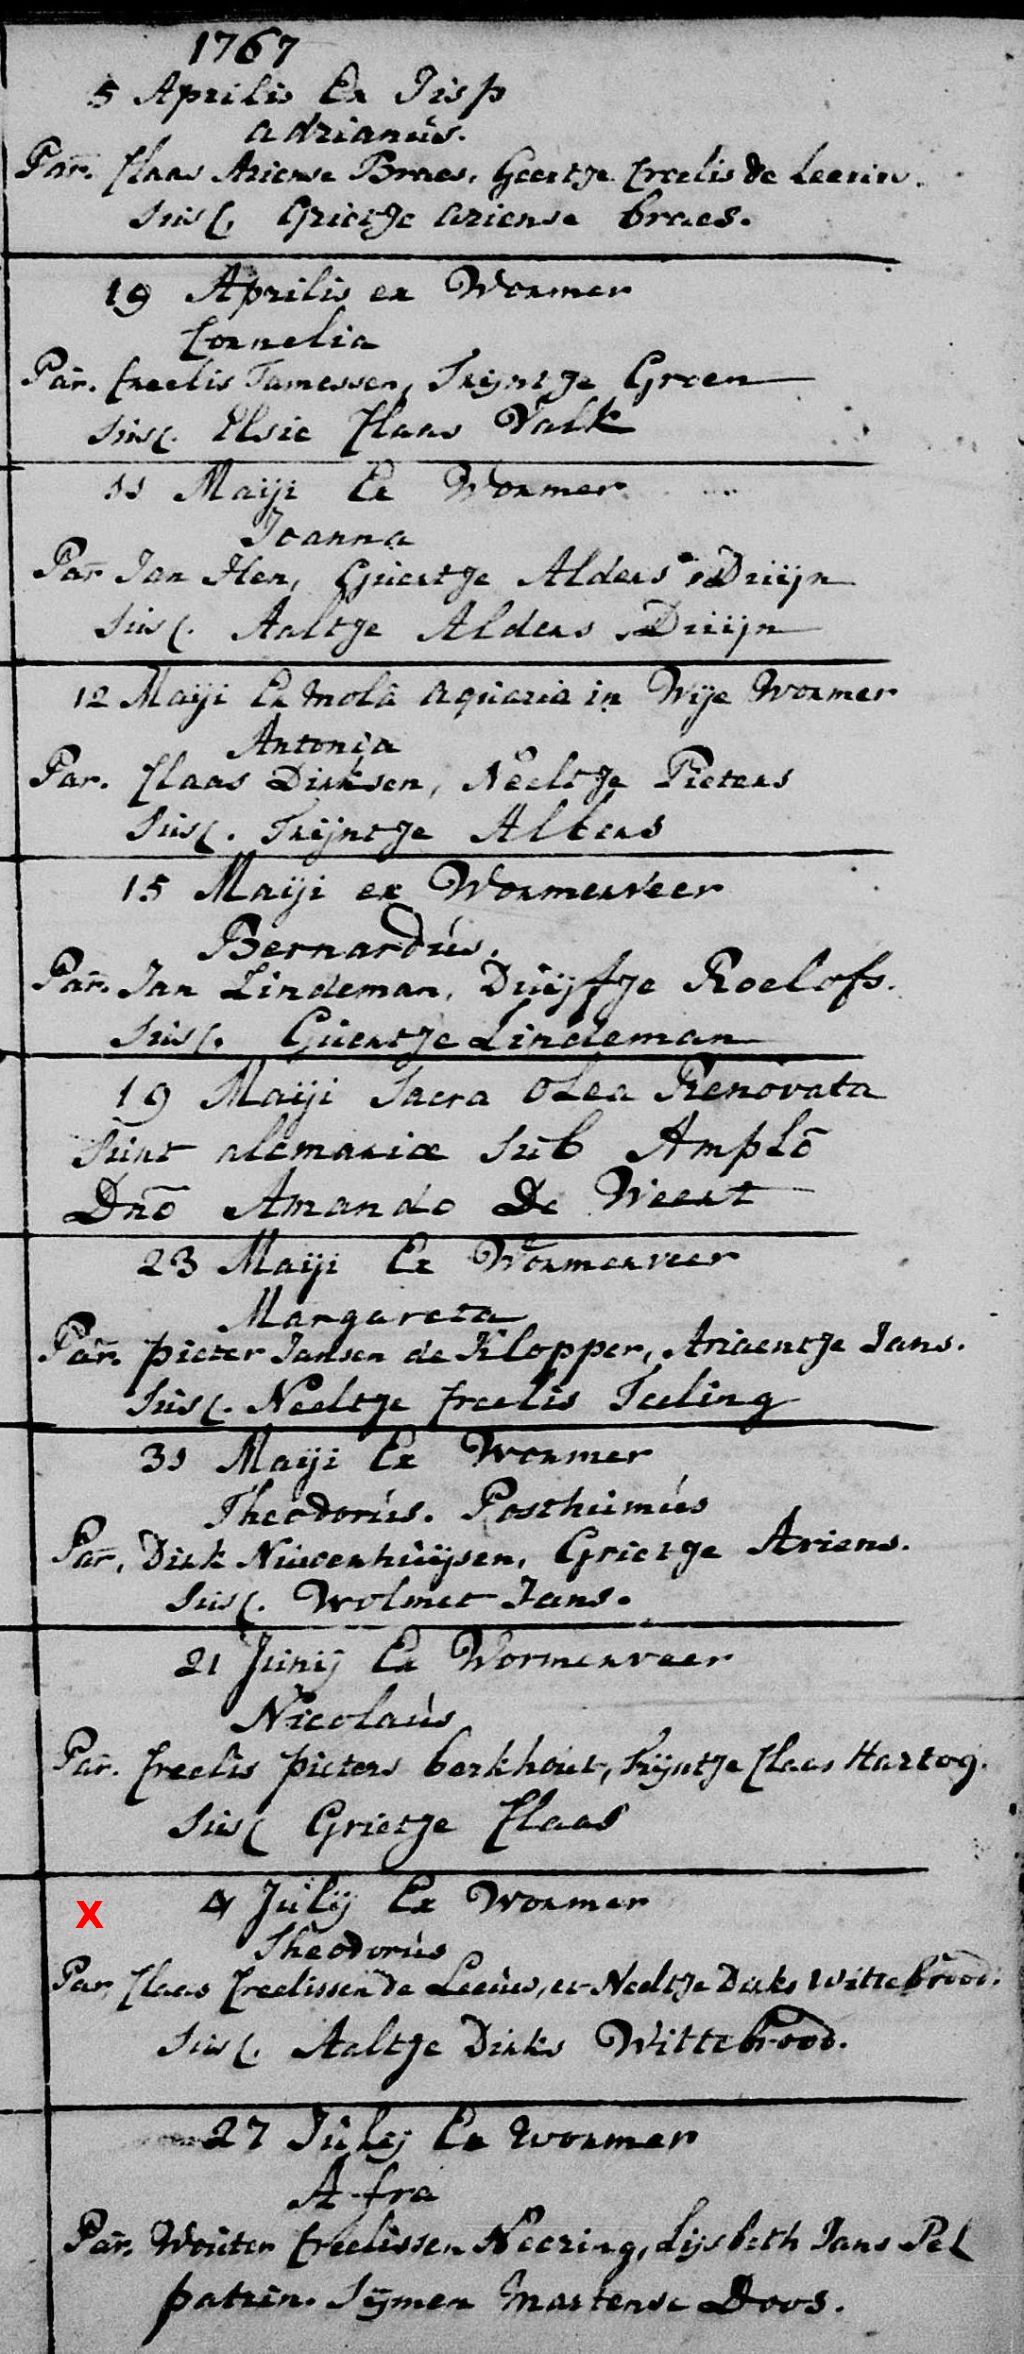 1767
5 Aprilis Ex Jisp
Adrianus.
Par. Claas Ariense Braes, Geertje Creelis de Leeuw.
Susc, Grietje Ariense braes.
19 Aprilis ex Wormer
Cornelia
Par. Creelis Jamessen, Trijntje Groen
Susc. Elsie Claas Valk
11 Maiji Ex Wormer
Joanna
Par Jan Hen, Guertje Alders Druijn
Susc. Aaltje Alders Druijn
12 Maiji Ex mola aquaria in Wije Wormer
Antonia
Par. Claas Dirksen, Neeltje Pieters
Susc. Trijntje Albers
15 Maiji ex Wormerveer
Bernardus.
Par. Jan Lindeman, Duijfje Roelofs.
Susc. Guertje Lindeman
19 Maiji Sacra Olea Renovata
Sunt alcmariæ sub Amplo
Dño Amando De Weert
23 Maiji Ex Wormerveer
Margareta
Par. pieter Jansen de Klopper, Ariaentje Jans.
Susc. Neeltje Creelis Teeling
31 Maiji Ex Wormer
Theodorus. Posthumus
Par, Dirk Niuwenhuijsen, Grietge Ariens.
Susc. Wolmet Jans.
21 Junij Ex Wormerveer
Nicolaus
Par. Creelis pieters berkhout, Trijntje Claas Hartog.
Susc Grietje Claas
X 4 Julij Ex Wormer
Theodorus
Par, Claas Creelissen de Leeuw, et Neeltje Dirks Wittebrood.
Susc. Aaltje Dirks Wittebrood.
27 Julij Ex Wormer
Afra
Par. Wouter Creelissen Neering, Lijsbeth Jans Pel
patrin. Sijmen Martense Doos.